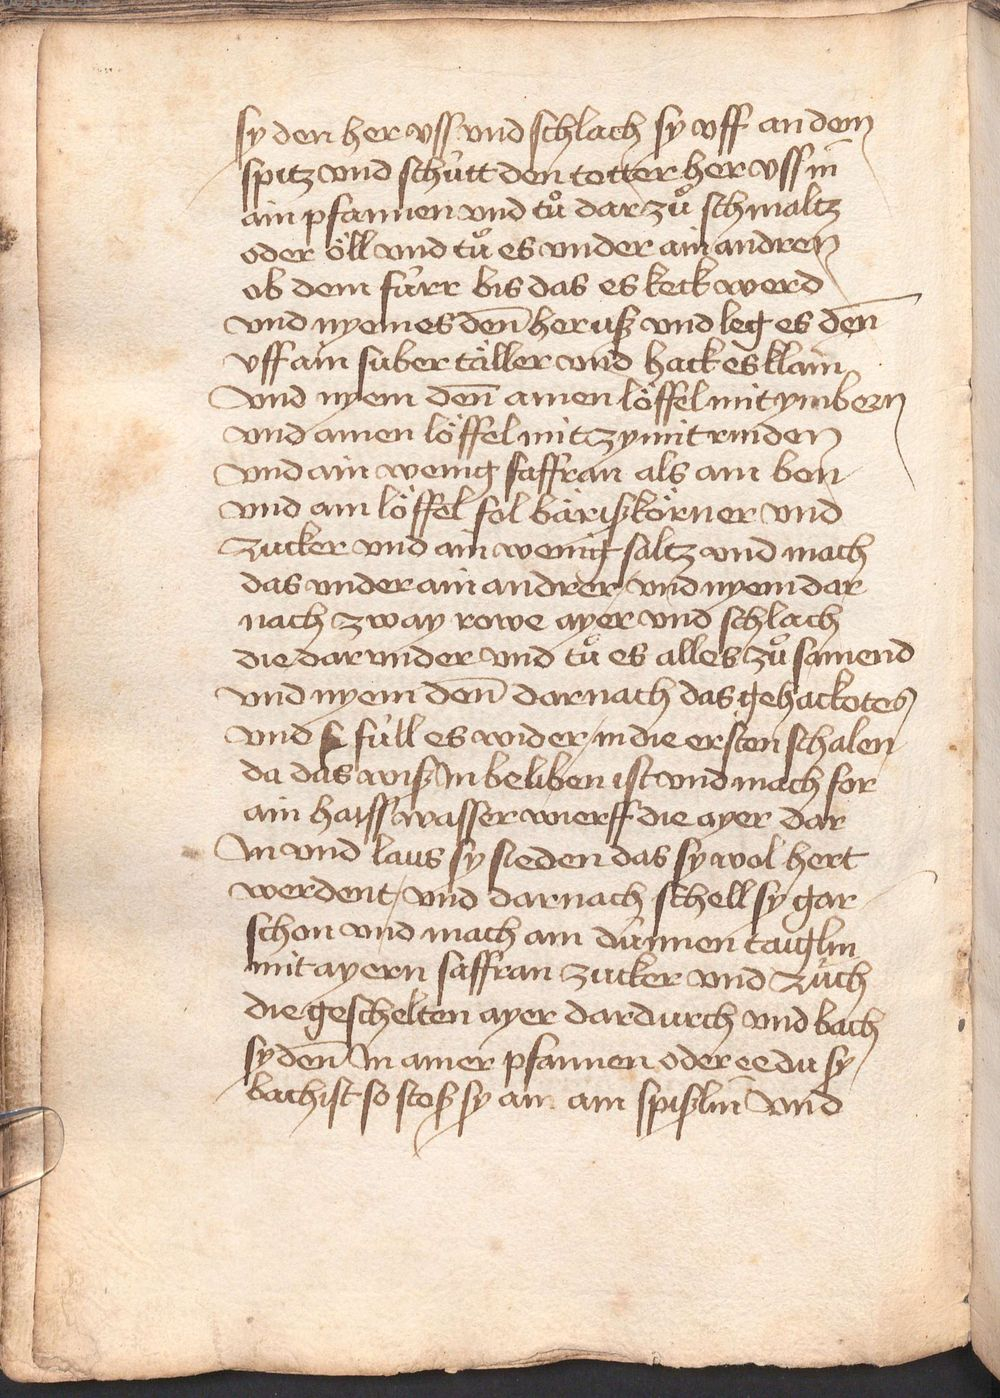 sy den her vss vnd schlach sy vff an dem
spitz vnd schütt den totter her vss in
ain pfannen vnd tů dar zů schmaltz
oder öll vnd tů es vnder ain andren
ob dem fürr bis das es keck werd
vnd nyem es den̄ her uß vnd leg es den̄
vff ain suber täller vnd hack es klain
vnd nyem den̄ ainen löffel mit ymbern
vnd ainen löffel mit zymit rinden
vnd ain wenig saffran als ain bon
vnd ain löffel fol bärißkörner vnd
zucker vnd ain wenig saltz vnd mach
das vnder ain andrer vnd nyem dar
nach zway rowe ayer vnd schlach
die dar vnder vnd tů es alles zů samend
vnd nyem den̄ darnach das gehackotes
vnd füll es wider in die ersten schalen
da das wiß In beliben ist vnd mach for
ain haiss wasser wierff die ayer dar
In vnd laus sy sieden das sy wol hert
werdent / vnd darnach schell sy gar
schon vnd mach ain dünnen taiglin
mit ayern saffran zucker vnd züch
die geschelten ayer dardurch vnd bach
sy den̄ In ainer pfannen oder ee du sy
bachist so stoß sy an ain spißlin vnd